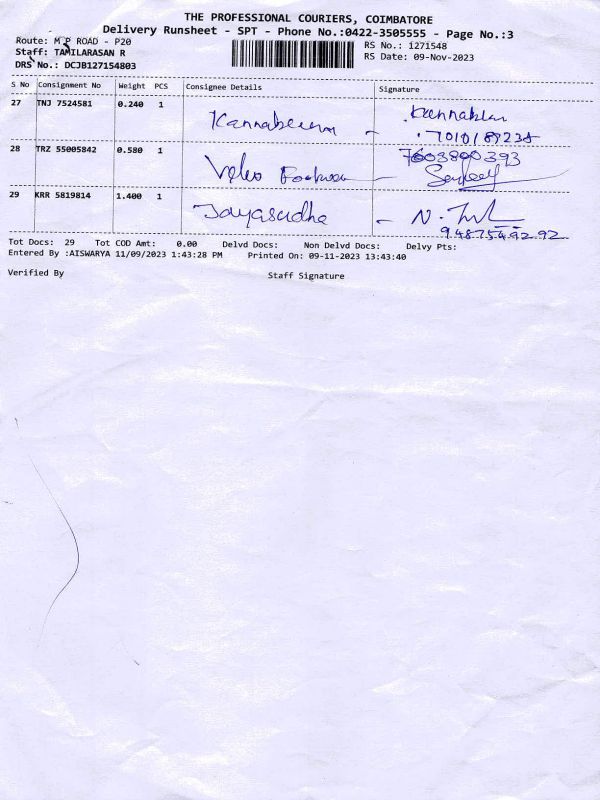 THE PROFESSIONAL COURIERS, COIMBATORE
Delivery Runsheet - SPT - Phone No.:0422-3505555 - Page No.:3
Route: M P ROAD - P20
Staff: TAMILARASAN R
DRS No.: DCJB127154803
RS No.: 1271548
RS Date: 09-Nov-2023
S No Consignment No Weight PCS Consignee Details Signature
27 TNJ 7524581 0.240 1
7010189238
28 TRZ 55005842 0.580 1 Velvo
7603800393
29 KRR 5819814 1.400 1 Jayasudha -
9487549292
Tot Docs: 29 Tot COD Amt: 0.00 Delvd Docs: Non Delvd Docs: Delvy Pts:
Entered By :AISWARYA 11/09/2023 1:43:28 PM Printed On: 09-11-2023 13:43:40
Verified By Staff Signature